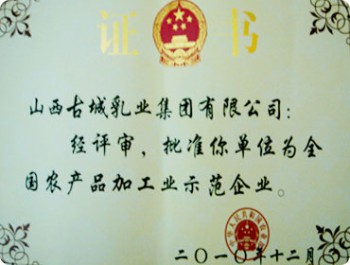 证书
山西古城乳业集团有限公司：
经评审，批准你单位为全
国农产品加工业示范企业。
二〇一〇年十二月